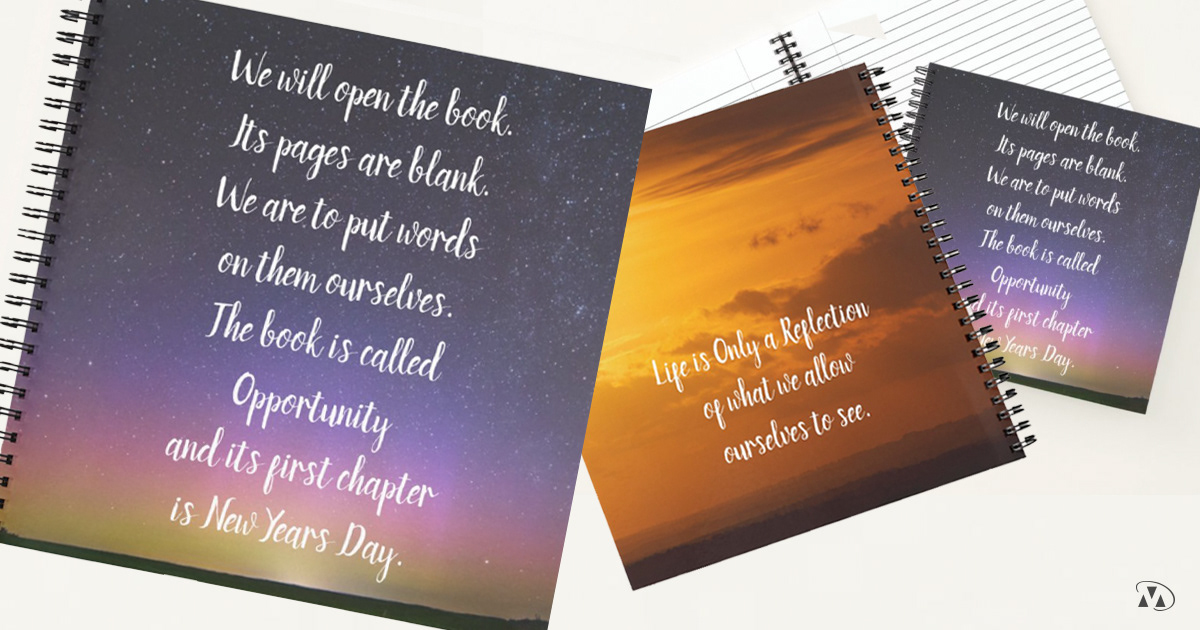 We will open the book.
Its pages are blank.
We are to put words
on them ourselves.
The book is called
Opportunity
and its first chapter
is New Years Day.
Life is Only a Reflection
of what we allow
ourselves to see.
We will open the book.
Its pages are blank.
We are to put words
on them ourselves.
The book is called
Opportunity
its first chapter
Years Day.